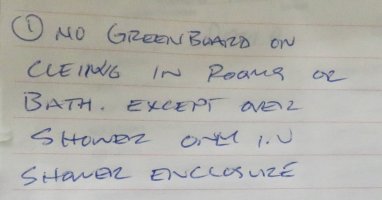 ① NO GREENBOARD ON
CLEING IN ROOMS OR
BATH. EXCEPT OVER
SHOWER ONLY IN
SHOWER ENCLOSURE